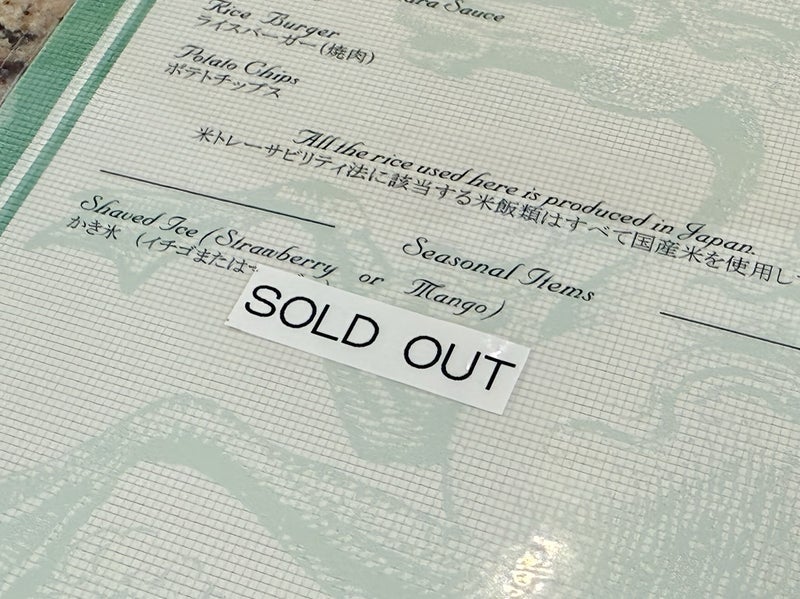 ara Sauce
Rice Burger
ライスバーガー(焼肉)
Potato Chips
ポテトチップス
All the rice used here is produced in Japan.
米トレーサビリティ法に該当する米飯類はすべて国産米を使用し
Seasonal Items
Shaved Ice (Strawberry or Mango)
かき氷 (イチゴまたは
SOLD OUT